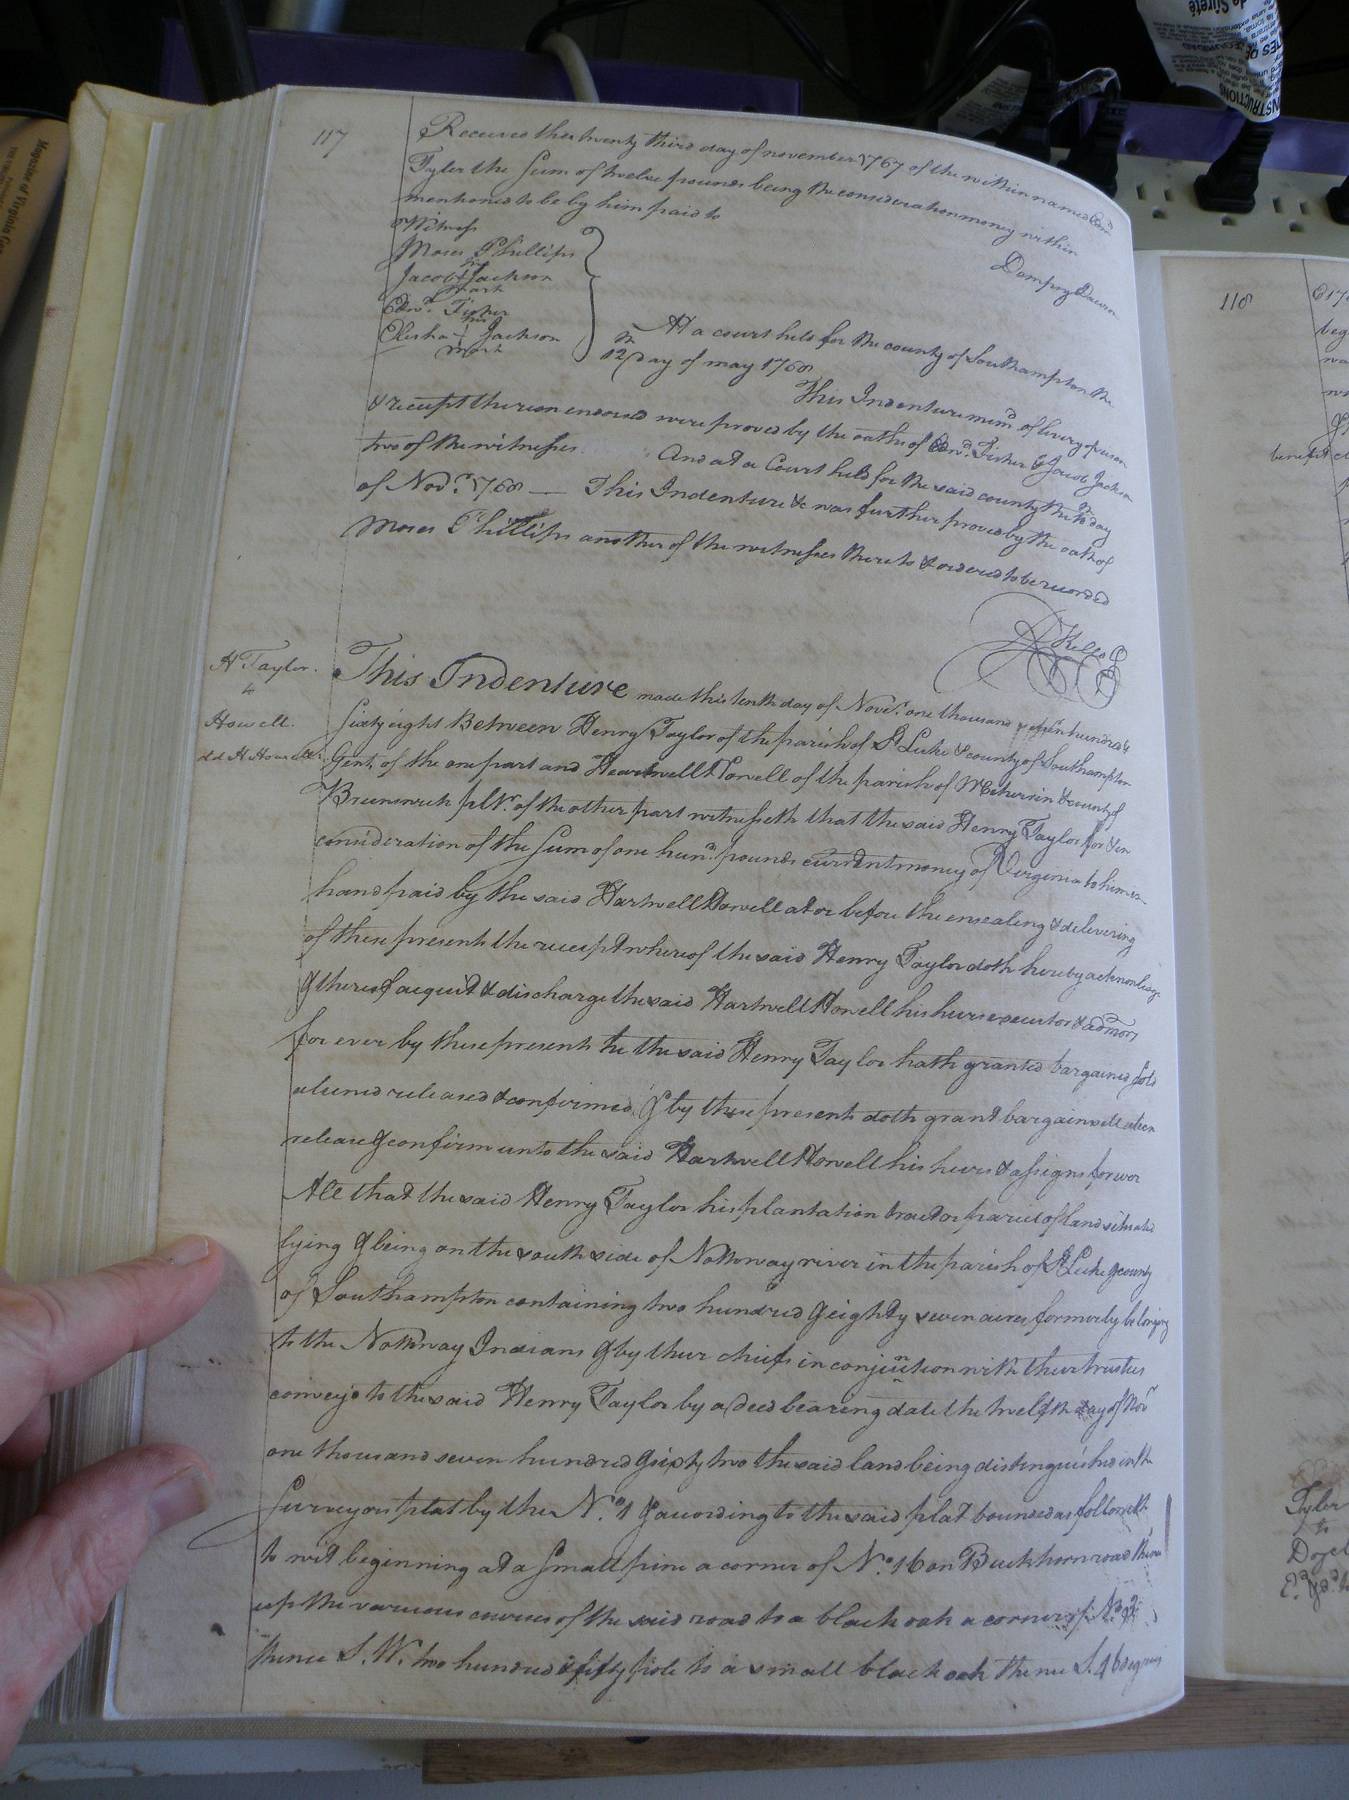 117
Received this twenty third day of november 1767 of the within named Edwd.
Tyler the Sum of twelve pounds being the consideration money within
mentioned to be by him paid to
Dempsy Dawson
Witness
Moses Phillips
his
Jacob Jackson
mark
Edwd. Fisher
his
Elisha Jackson
mark
At a court held for the county of Southampton the
12th day of may 1768
This Indenture memd. of livery of seisen
& receipt thereon endorsed were proved by the oaths of Edwd. Fisher & Jacob Jackson
two of the witnesses And at a Court held for the said county the day
of Novr. 1768 — This Indenture &c was further proved by the oath of
Moses Phillips another of the witnesses thereto & ordered to be recorded
Kello
H Taylor
Howell
dd H Howell
This Indenture made this tenth day of Novr. one thousand seven hundred &
Sixty eight Between Henry Taylor of the parish of St Luke & county of Southampton
Gent. of the one part and Heartwell Howell of the parish of Meherrin & county of
Brunswick pltr. of the other part witnesseth that the said Henry Taylor for & in
consideration of the Sum of one hund. pounds currant money of Virginia to him in
hand paid by the said Hartwell Howell at or before the ensealing & delivering
of these presents the receipt whereof the said Henry Taylor doth hereby acknowledge
& thereof acquit & discharge the said Hartwell Howell his heirs executors & admors
for ever by these presents he the said Henry Taylor hath granted bargained sold
aliened released & confirmed & by these presents doth grant bargain sell alien
release & confirm unto the said Hartwell Howell his heirs & assigns forever
All that the said Henry Taylor his plantation tract or parcel of land situated
lying & being on the south side of Nottoway river in the parish of St Luke & county
of Southampton containing two hundred & eighty seven acres formerly belonging
to the Nottoway Indians & by their chiefs in conjunction with their trustees
conveyd to the said Henry Taylor by a deed bearing date the twelfth day of Novr
one thousand seven hundred & sixty two the said land being distinguished in the
Surveyors plat by the No. 1 & according to the said plat bounded as followeth
to wit beginning at a Small pine a corner of No. 16 on Buckhorn road thence
up the various courses of the said road to a black oak a corner of No. 2
thence S. W. two hundred & fifty pole to a small black oak thence S. 46 degrees
118
Tyler
to